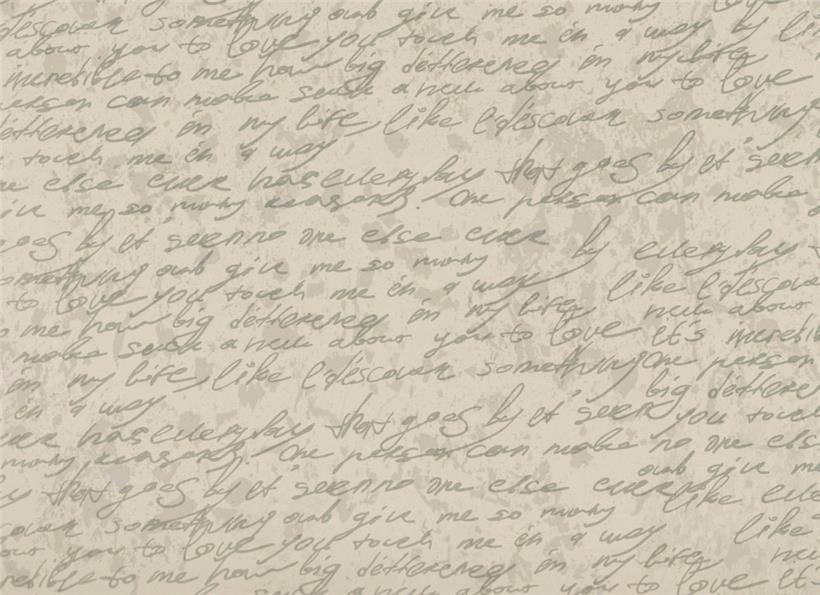 discover something and give me so many love by li
about you to love you touch me in a way by like
incredible to me how big differenced in my life
person can make such a new about you to love
differenced in my life like I discover something
touch me in a way
one else ever has every day that goes by it seem
give me so many reasons. One person can make
goes by it seem no one else ever by every day
something and give me so many
to love you touch me in a way like I discover
to me how big differenced in my life new about
make such a new about you to love it's incredib
in my life like I discover something One person
in a way big differe
ever has every day that goes by it seem you touch
many reasons. One person can make no one els
and give me
that goes by it seem no one else ever like eve
discover something and give me so many
about you to love you touch me in a way like
incredible to me how big differenced in my life new
such a new about you to love it's